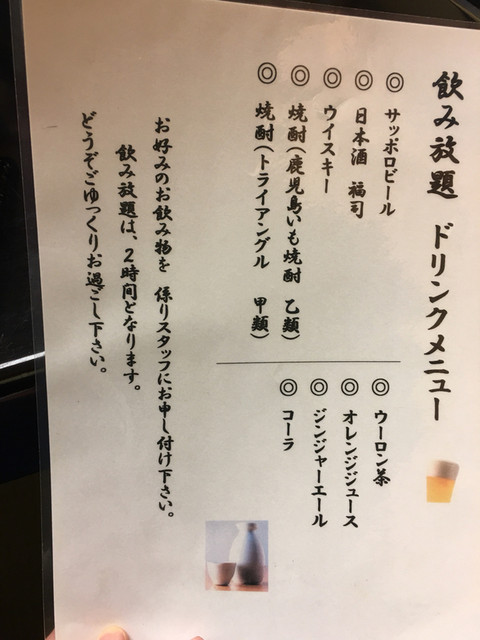 飲み放題 ドリンクメニュー
◎ サッポロビール
◎ 日本酒 福司
◎ ウイスキー
◎ 焼酎(鹿児島いも焼酎 乙類)
◎ 焼酎(トライアングル 甲類)
◎ ウーロン茶
◎ オレンジジュース
◎ ジンジャーエール
◎ コーラ
お好みのお飲み物を 係りスタッフにお申し付け下さい。
飲み放題は、2時間となります。
どうぞごゆっくりお過ごし下さい。